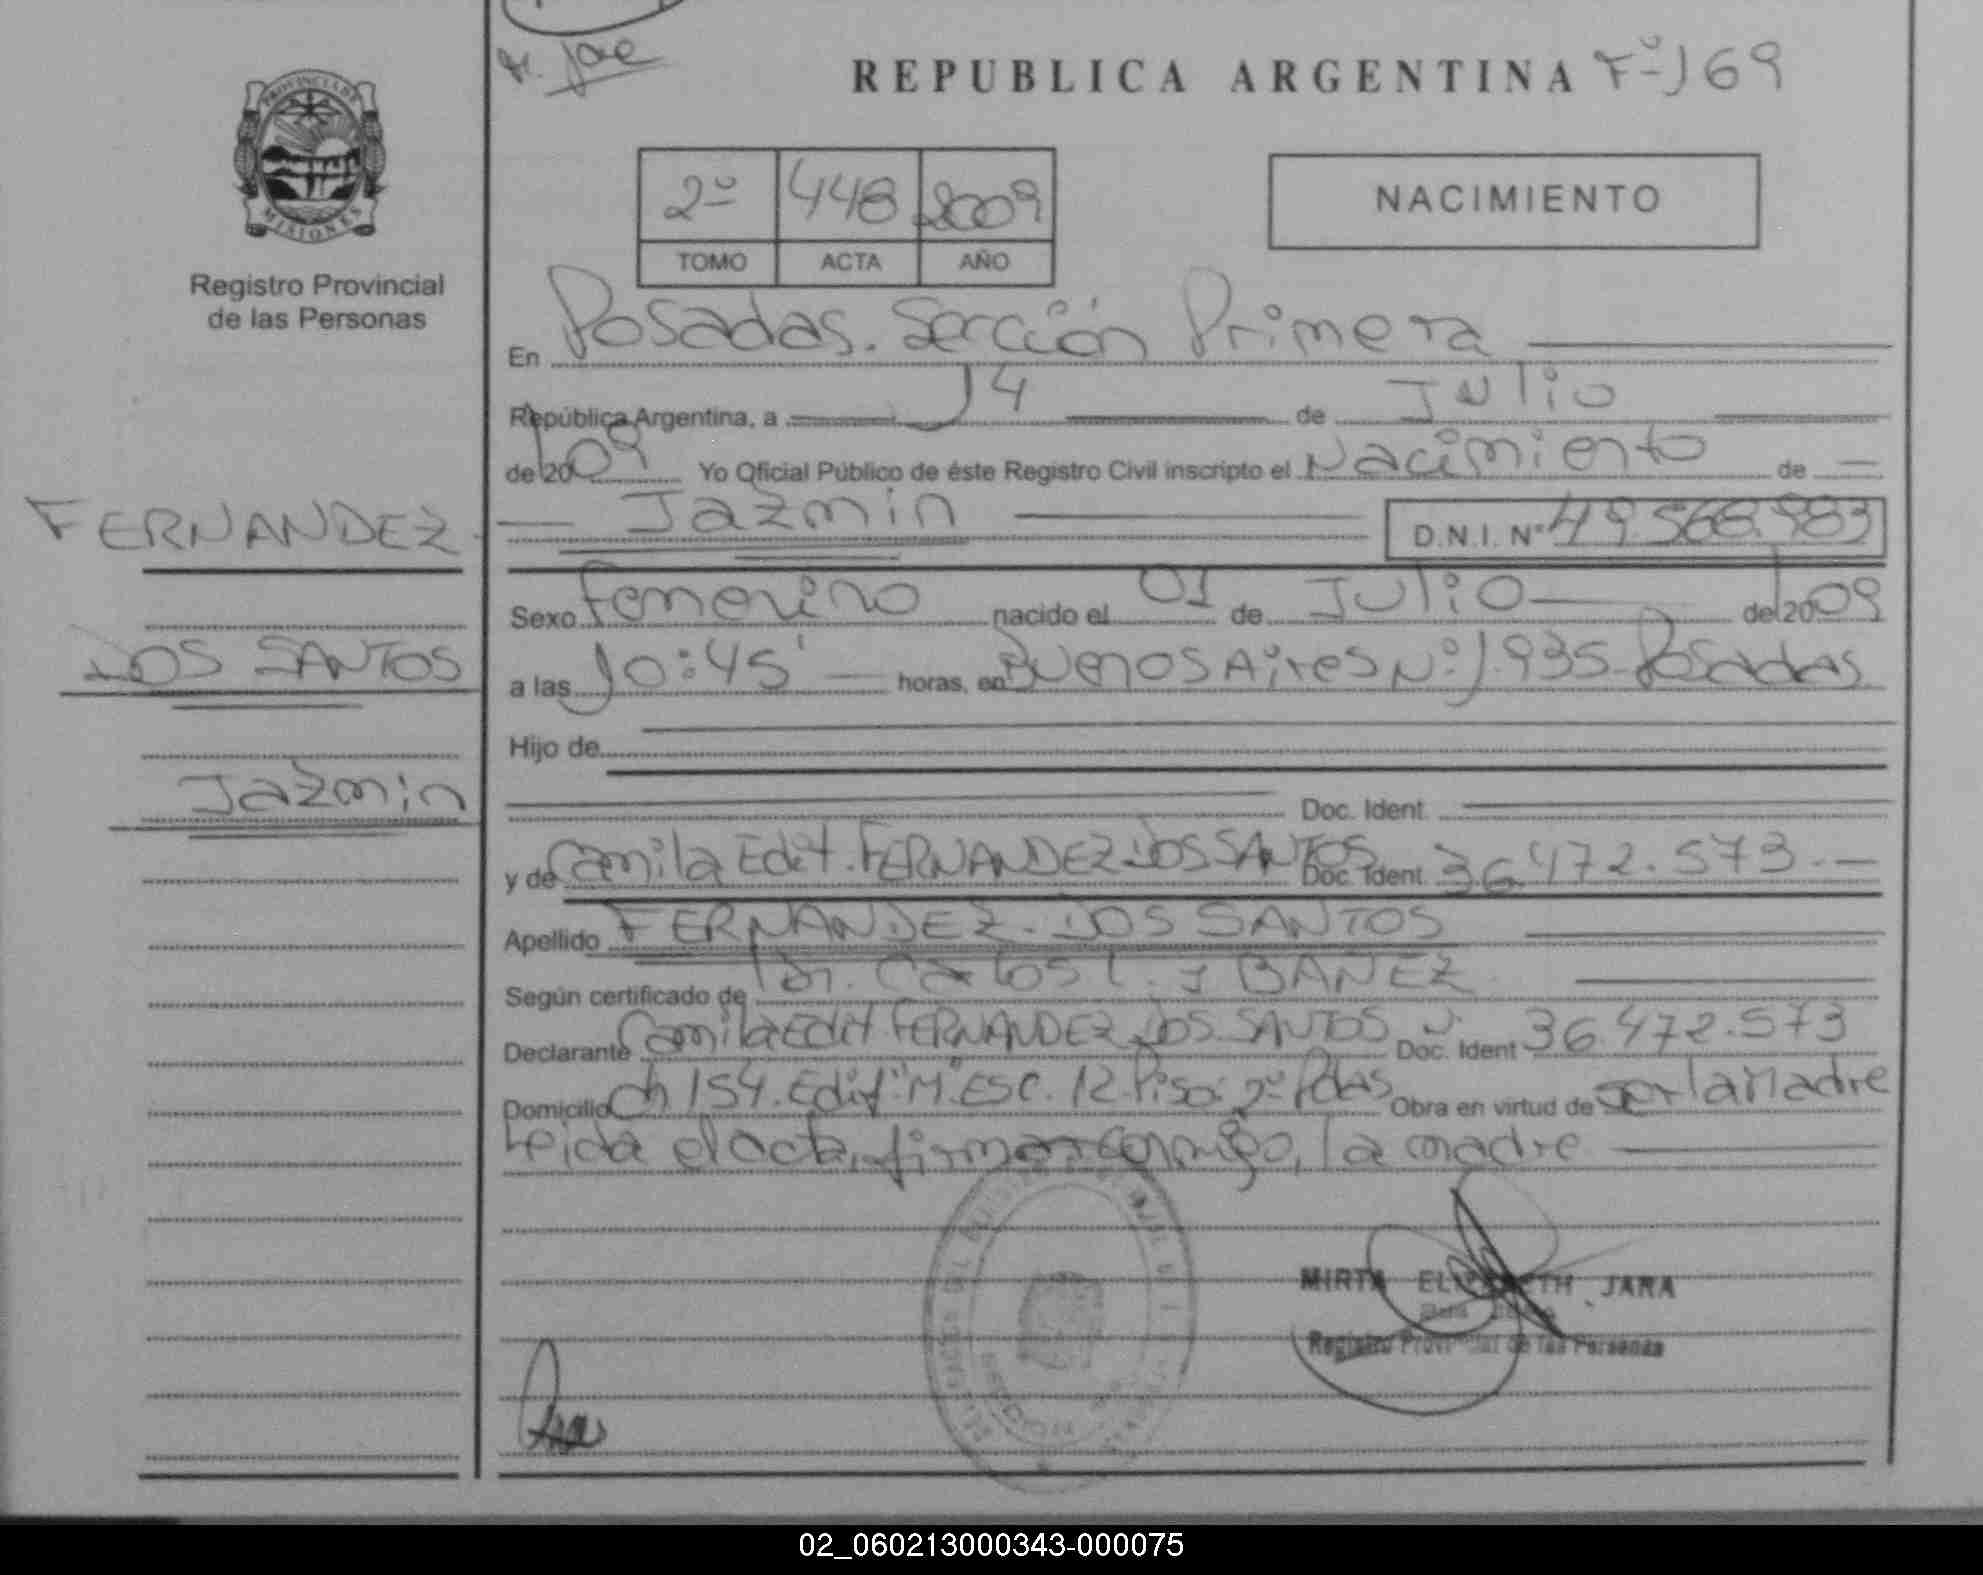 Dr. Jose
REPUBLICA ARGENTINA Fº 169
PROVINCIA DE
MISIONES
Registro Provincial
de las Personas
2º 448 2009
TOMO ACTA AÑO
NACIMIENTO
En Posadas. Sección Primera
República Argentina, a 14 de Julio
del 2009 Yo Oficial Público de éste Registro Civil inscripto el Nacimiento de
FERNANDEZ
Jazmin D.N.I. Nº 49.568.983
Sexo Femenino nacido el 01 de Julio del 2009
DOS SANTOS
a las 10:45' horas, en Buenos Aires Nº 1.935 Posadas
Hijo de
Jazmin
Doc. Ident.
y de Camila Edit. FERNANDEZ DOS SANTOS Doc. Ident. 36.472.573.-
Apellido FERNANDEZ. DOS SANTOS
Según certificado de Dr. Carlos L. IBAÑEZ
Declarante Camila Edit FERNANDEZ DOS SANTOS Doc. Ident 36.472.573
Domicilio Ch 154. Edif "M" ESC. 12. Piso: 2º Pdas Obra en virtud de ser la Madre
Leida el acta, firman conmigo, la madre
MIRTA ELIZABETH JARA
Registro Provincial de las Personas
02_060213000343-000075